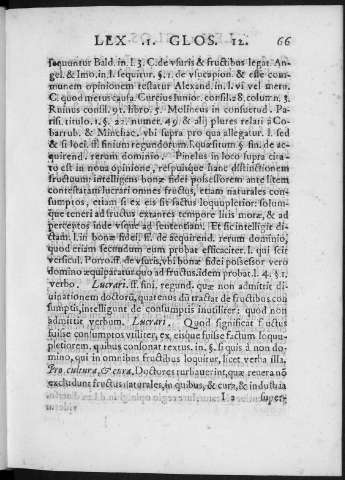 LEX .1. GLOS. 12. 66
sequontur Bald. in. l. 3. C. de vsuris & fructibus legat. An-
gel. & Imo. in l. sequitur. §. 1. de vsucapion. & esse com-
munem opinionem testatur Alexand. in. l. vi vel metu.
C. quod metus causa. Curcius Iunior. consil. 28. colum. 3.
Ruinus consil. 91. libro. 5. Molineus in consuetud. Pa-
risi. titulo. 1. §. 22. numer. 49. & alij plures relati à Co-
barrub. & Minchac. vbi supra pro qua allegatur. l. sed
& si loci. ff. finium regundorum l. quæsitum §. fin. de ac-
quirend. rerum dominio. Pinelus in loco supra cita-
to est in noua opinione, respuitque hanc distinctionem
fructuum: intelligens bonæ fidei possessorem ante litem
contestatam lucrari omnes fructus, etiam naturales con-
sumptos, etiam si ex eis sit factus locupletior: solum-
que teneri ad fructus extantes tempore litis motæ, & ad
perceptos inde vsque ad sententiam. Et sic intelligit di-
ctam. l. in bonæ fidei, ff. de acquirend. rerum dominio,
quod etiam secundum eum probat efficaciter. l. qui scit
versicul. Porro. ff. de vsuris, vbi bonæ fidei possessor vero
domino æquiparatur quo ad fructus. idem probat l. 4. § 1.
verbo. Lucrari. ff. fini. regund. quæ non admittit di-
uinationem doctorū, quatenus dū tractat de fructibus con
sumptis, intelligunt de consumptis inutiliter: quod non
admittit verbum. Lucrari. Quod significat fructus
fuisse consumptos vtiliter, ex, eisque fuisse factum locu-
pletiorem. quibus consonat textus. in. §. si quis à non do-
mino, qui in omnibus fructibus loquitur, licet verba illa,
Pro cultura, & cura, Doctores turbauerint, quæ reuera nō
excludunt fructus naturales, in quibus, & cura, & industria
I 2 super-